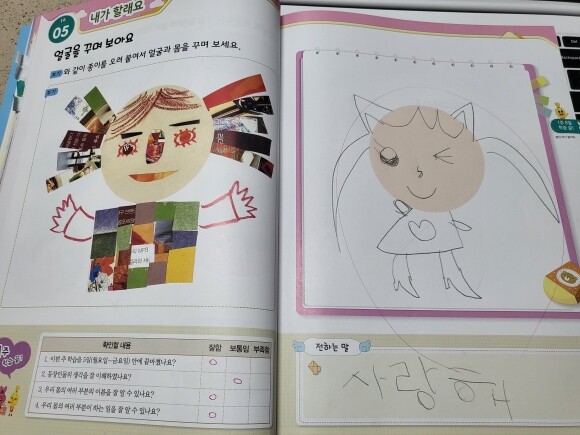 05
내가 할래요
얼굴을 꾸며 보아요
보기 와 같이 종이를 오려 붙여서 얼굴과 몸을 꾸며 보세요.
보기
확인할 내용
잘함
보통임
부족함
1. 이번 주 학습을 5일(월요일~금요일) 안에 끝마쳤나요?
2. 등장인물의 생각을 잘 이해하였나요?
3. 우리 몸의 여러 부분의 이름을 잘 알 수 있나요?
4. 우리 몸의 여러 부분이 하는 일을 잘 알 수 있나요?
전하는 말
사랑해